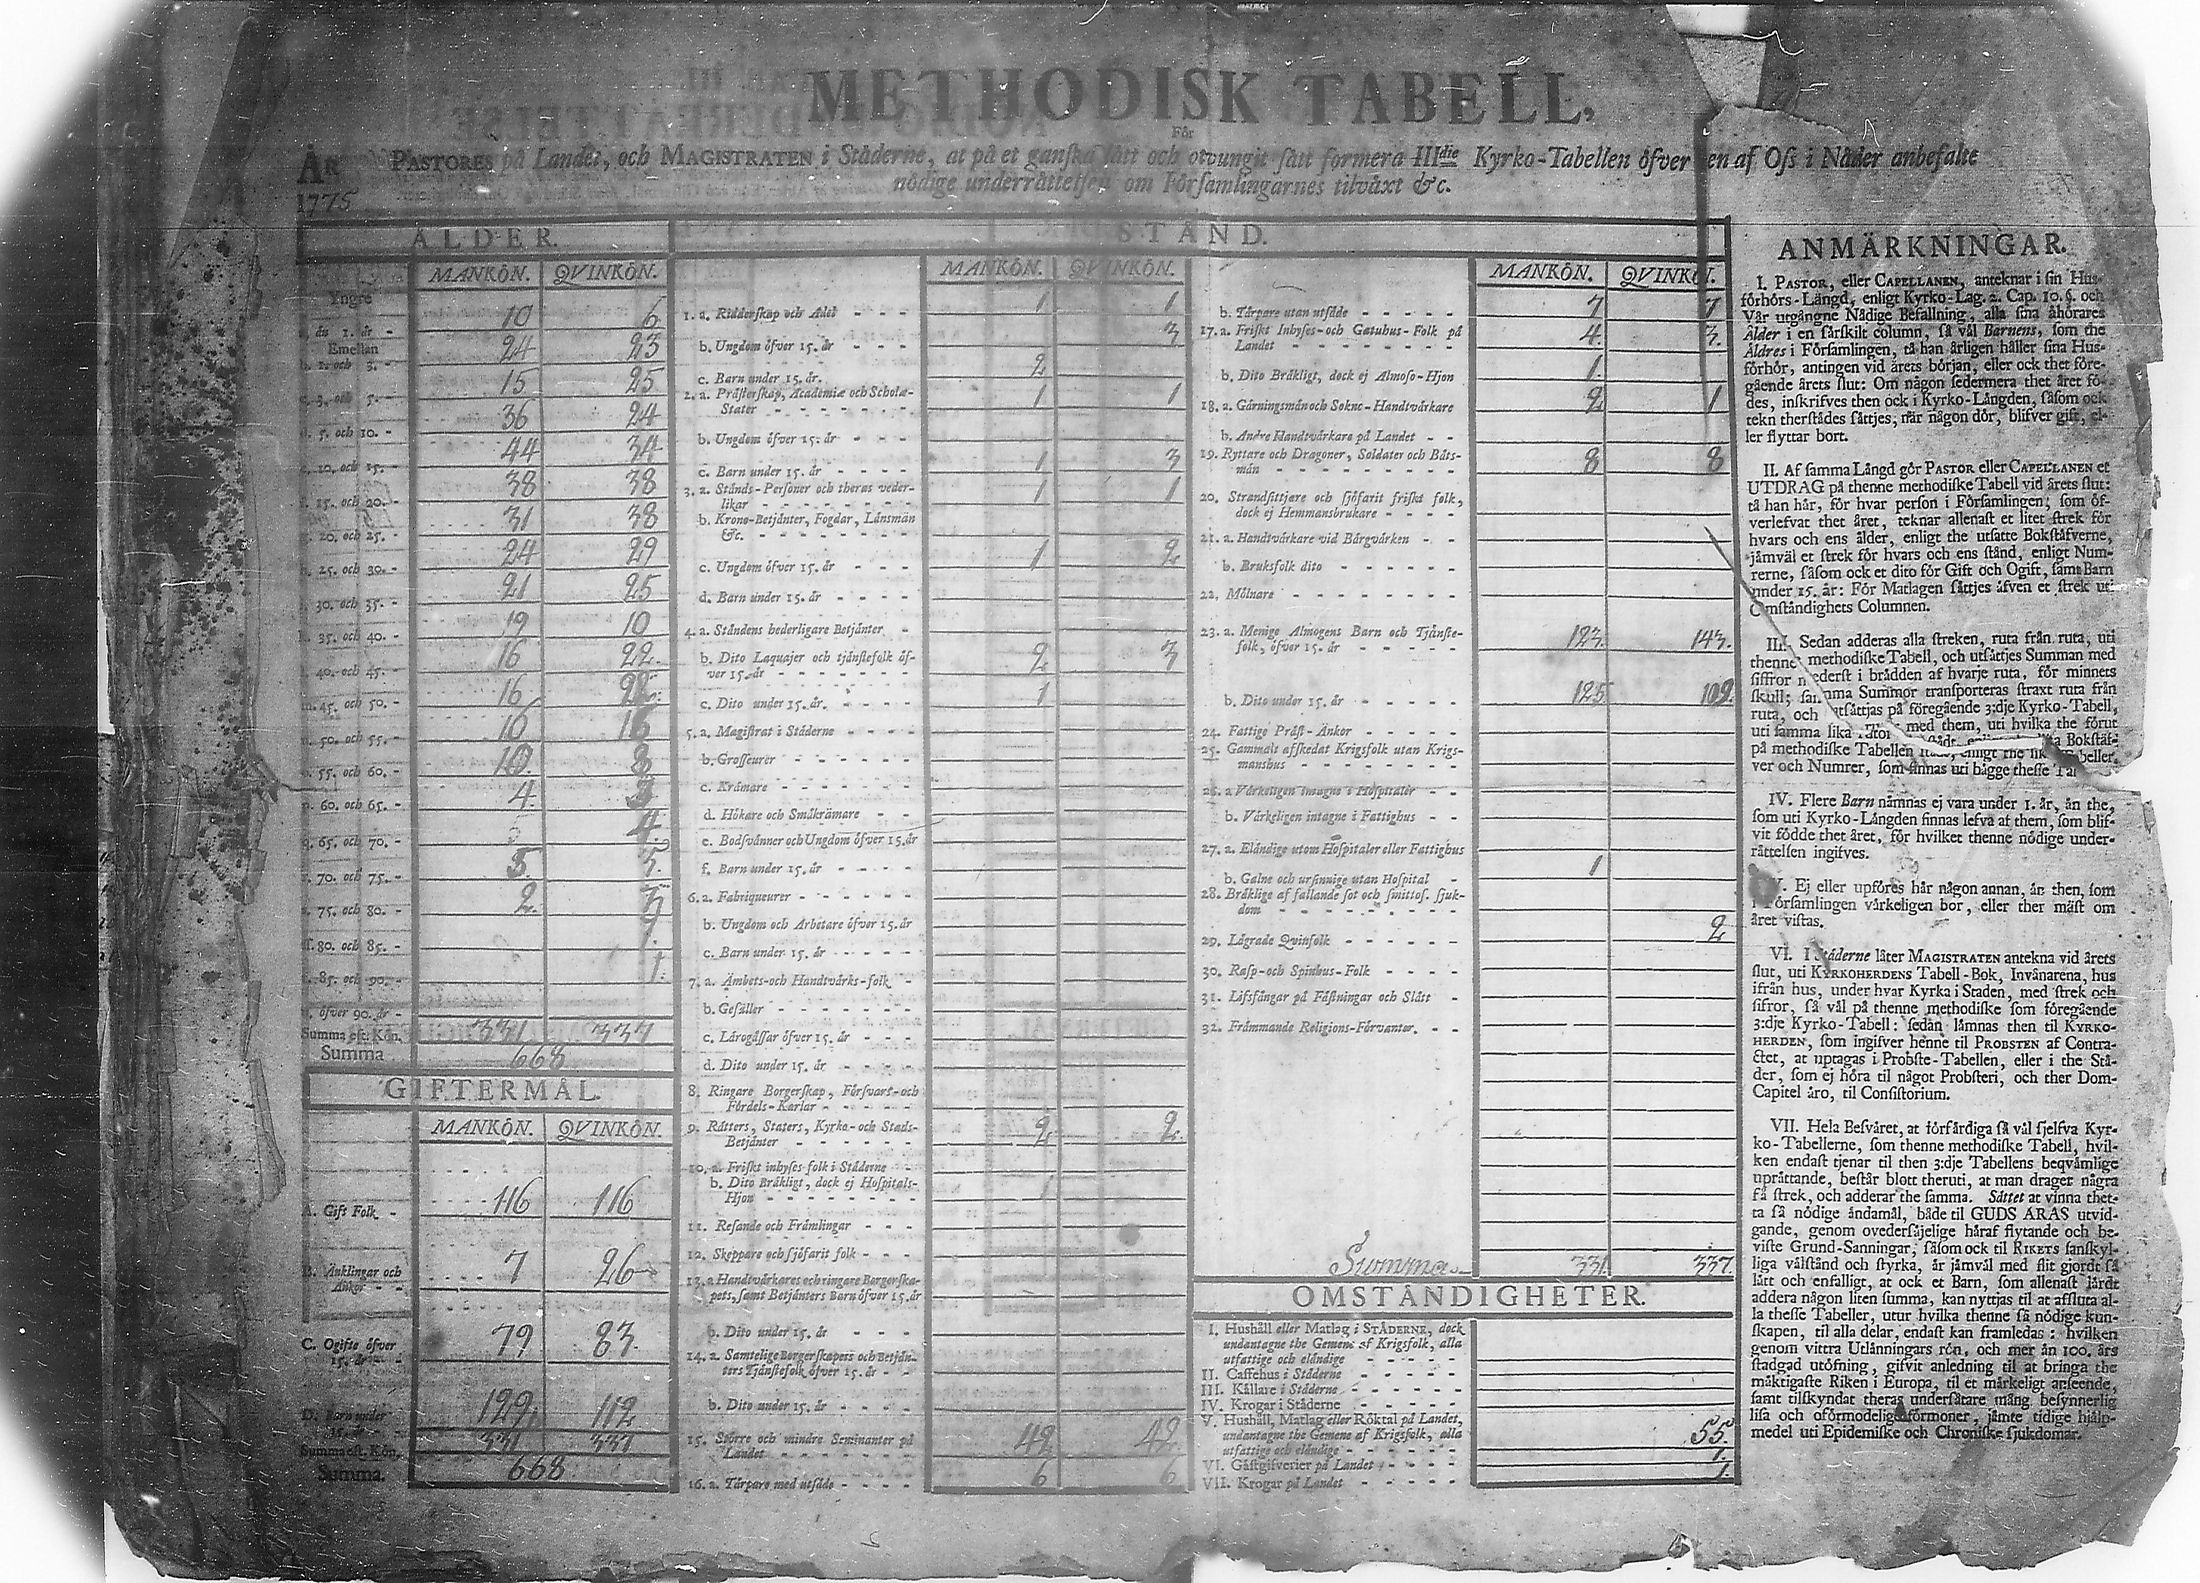 METHODISK TABELL,
För
ÅR PASTORES på Landet, och MAGISTRATEN i Städerne, at på et ganska lätt och otvungit sätt formera IIIdie Kyrko-Tabellen öfver en af Oss i Nåder anbefalte
1775 nödige underrättelsen om Församlingarnes tilväxt &c.
ÅLDER.
MANKÖN. QVINKÖN.
Yngre
än 1. år - 10 6
Emellan
1. och 3. - 24 23
3. och 5. - 15 25
5. och 10. - 36 24
10. och 15. - 44 34
15. och 20. - 38 38
20. och 25. - 31 38
25. och 30. - 24 29
30. och 35. - 21 25
35. och 40. - 19 10
40. och 45. - 16 22
m. 45. och 50. - 16
50. och 55. - 16 16
55. och 60. - 10 3
60. och 65. - 4 3
65. och 70. - 4
70. och 75. - 5 5
75. och 80. - 2
80. och 85. - 1
85. och 90. - 1
öfver 90. år -
Summa eft. Kön. 331 337
Summa 668
GIFTERMÅL.
MANKÖN. QVINKÖN.
A. Gift Folk - 116 116
B. Änklingar och
Änkor - - 7 26
C. Ogifte öfver
15. år - - 79 83
D. Barn under
15. år - - 129 112
Summa eft. Kön. 331 337
Summa. 668
STÅND.
MANKÖN. QVINKÖN.
1. a. Ridderskap och Adel - - - 1 1
b. Ungdom öfver 15. år - - - 3
c. Barn under 15. år. 2
2. a. Prästerskap, Academiæ och Scholæ-
Stater - - - - - - - 1 1
b. Ungdom öfver 15. år - - - -
c. Barn under 15. år - - - - - 1 3
3. a. Stånds-Personer och theras veder-
likar - - - - - - - - 1 1
b. Krono-Betjänter, Fogdar, Länsmän
&c. - - - - - - - -
c. Ungdom öfver 15. år - - - - 1 2
d. Barn under 15. år - - - -
4. a. Ståndens hederligare Betjänter -
b. Dito Laquajer och tjänstefolk öf-
ver 15. år - - - - - - - 2 3
c. Dito under 15. år. - - - - 1
5. a. Magistrat i Städerne - - - -
b. Grosseurer - - - - - - -
c. Krämare - - - - - - -
d. Hökare och Småkrämare - - -
e. Bodsvänner och Ungdom öfver 15. år
f. Barn under 15. år - - - -
6. a. Fabriqueurer - - - - - -
b. Ungdom och Arbetare öfver 15. år
c. Barn under 15. år - - - -
7. a. Ämbets-och Handtvärks-folk - -
b. Gesäller - - - - - - -
c. Lärogässar öfver 15. år - - -
d. Dito under 15. år - - - -
8. Ringare Borgerskap, Försvars-och
Fördels-Karlar - - - - -
9. Rätters, Staters, Kyrko-och Stads-
Betjänter - - - - - - - 2 2
10. a. Friskt inhyses folk i Städerne - -
b. Dito Bräkligt, dock ej Hospitals-
Hjon - - - - - - - - 1
11. Resande och Främlingar - - -
12. Skeppare och sjöfarit folk - - -
13. a Handtvärkares och ringare Borgerska-
pets, samt Betjänters Barn öfver 15. år
b. Dito under 15. år - - - -
14. a. Samtelige Borgerskapets och Betjän-
ters Tjänstefolk öfver 15. år - -
b. Dito under 15. år - - - -
15. Större och mindre Hemmanter på
Landet - - - - - - - 42 42
16. a. Torpare med utsäde - - - - 6 6
MANKÖN. QVINKÖN.
b. Torpare utan utsäde - - - - 7 7
17. a. Friskt Inhyses-och Gatuhus-Folk på
Landet - - - - - - - 4 3
b. Dito Bräkligt, dock ej Almoso-Hjon 1
18. a. Gärningsmän och Sokne-Handtvärkare 2 1
b. Andre Handtvärkare på Landet - -
19. Ryttare och Dragoner, Soldater och Båts-
män - - - - - - - - 8 8
20. Strandsittjare och sjöfarit friskt folk,
dock ej Hemmansbrukare - - - -
21. a. Handtvärkare vid Bärgvärken - -
b. Bruksfolk dito - - - - - -
22. Mölnare - - - - - - - -
23. a. Menige Almogens Barn och Tjänste-
folk, öfver 15. år - - - - - 123. 143.
b. Dito under 15. år - - - - - 125 102.
24. Fattige Präst-Änkor - - - - -
25. Gammalt afskedat Krigsfolk utan Krigs-
manshus - - - - - - - -
26. a Värkeligen intagne i Hospitaler - -
b. Värkeligen intagne i Fattighus - -
27. a. Eländige utom Hospitaler eller Fattighus
b. Galne och ursinnige utan Hospital - 1
28. Bräklige af fallande sot och smittos. sjuk-
dom - - - - - - - -
29. Lägrade Qvinfolk - - - - - - 2
30. Rasp-och Spinhus-Folk - - - -
31. Lifsfångar på Fästningar och Slått -
32. Främmande Religions-Förvanter. - -
Summa 331. 337
OMSTÄNDIGHETER.
I. Hushåll eller Matlag i STÄDERNE, dock
undantagne the Gemene af Krigsfolk, alla
utfattige och eländige - - - - -
II. Caffehus i Städerne - - - - -
III. Källare i Städerne - - - - -
IV. Krogar i Städerne - - - - -
V. Hushåll, Matlag eller Röktal på Landet,
undantagne the Gemene af Krigsfolk, alla
utfattige och eländige - - - - - 55.
VI. Gästgifverier på Landet - - - - 1.
VII. Krogar på Landet - - - - 1.
ANMÄRKNINGAR.
I. PASTOR, eller CAPELLANEN, anteknar i sin Hus-
förhörs-Längd, enligt Kyrko-Lag. 2. Cap. 10. §. och
Vår utgångne Nådige Befallning, alla sina åhörares
Ålder i en särskilt column, så väl Barnens, som the
Äldres i Församlingen, tå han årligen håller sina Hus-
förhör, antingen vid årets början, eller ock thet före-
gående årets slut: Om någon sedermera thet året fö-
des, inskrifves then ock i Kyrko-Längden, såsom ock
tekn therstädes sättjes, när någon dör, blifver gift, el-
ler flyttar bort.
II. Af samma Längd gör PASTOR eller CAPELLANEN et
UTDRAG på thenne methodiske Tabell vid årets slut:
tå han här, för hvar person i Församlingen, som öf-
verlefvat thet året, teknar allenast et litet strek för
hvars och ens ålder, enligt the utsatte Bokstäfverne,
jämväl et strek för hvars och ens stånd, enligt Num-
rerne, såsom ock et dito för Gift och Ogift, samt Barn
under 15. år: För Matlagen sättjes äfven et strek uti
Omständighets Columnen.
III. Sedan adderas alla streken, ruta från ruta, uti
thenne methodiske Tabell, och utsättjes Summan med
siffror nederst i brädden af hvarje ruta, för minnets
skull; samma Summor transporteras straxt ruta från
ruta, och utsättjas på föregående 3:dje Kyrko-Tabell,
uti samma lika med them, uti hvilka the förut
på methodiske Tabellen enligt the lik
ver och Numrer, som finnas uti bägge thesse Ta
IV. Flere Barn nämnas ej vara under 1. år, än the,
som uti Kyrko-Längden finnas lefva af them, som blif-
vit födde thet året, för hvilket thenne nödige under-
rättelsen ingifves.
V. Ej eller upföres här någon annan, än then, som
i Församlingen värkeligen bor, eller ther mäst om
året vistas.
VI. I Städerne låter MAGISTRATEN antekna vid årets
slut, uti KYRKOHERDENS Tabell-Bok, Invånarena, hus
ifrån hus, under hvar Kyrka i Staden, med strek och
sifror, så väl på thenne methodiske som föregående
3:dje Kyrko-Tabell: sedan lämnas then til KYRKO-
HERDEN, som ingifver henne til PROBSTEN af Contra-
ctet, at uptagas i Probste-Tabellen, eller i the Stä-
der, som ej höra til något Probsteri, och ther Dom-
Capitel äro, til Consistorium.
VII. Hela Besväret, at förfärdiga så väl sjelfva Kyr-
ko-Tabellerne, som thenne methodiske Tabell, hvil-
ken endast tjenar til then 3:dje Tabellens beqvämlige
uprättande, består blott theruti, at man drager några
få strek, och adderar the samma. Sättet at vinna thet-
ta så nödige ändamål, både til GUDS ÄRAS utvid-
gande, genom ovedersäjelige häraf flytande och be-
viste Grund-Sanningar, såsom ock til RIKETS sanskyl-
liga välstånd och styrka, är jämväl med flit gjordt så
lätt och enfalligt, at ock et Barn, som allenast lärdt
addera någon liten summa, kan nyttjas til at afsluta al-
la thesse Tabeller, utur hvilka thenne så nödige kun-
skapen, til alla delar, endast kan framledas: hvilken
genom vittra Utlänningars rön, och mer än 100. års
stadgad utöfning, gifvit anledning til at bringa the
mäktigaste Riken i Europa, til et märkeligt anseende,
samt tilskyndat theras undersåtare mång. besynnerlig
lisa och oförmodelige förmoner, jämte tidige hjälp-
medel uti Epidemiske och Chroniske sjukdomar.